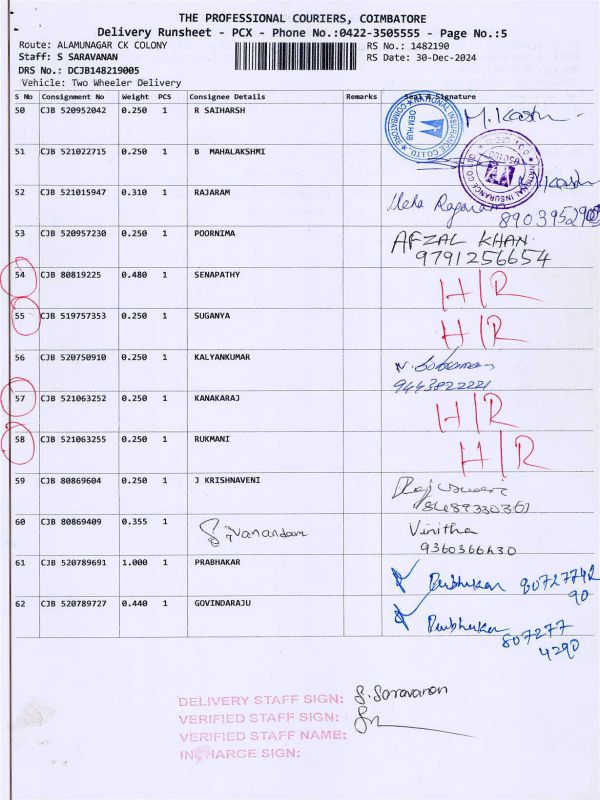 THE PROFESSIONAL COURIERS, COIMBATORE
Delivery Runsheet - PCX - Phone No.:0422-3505555 - Page No.:5
Route: ALAMUNAGAR CK COLONY RS No.: 1482190
Staff: S SARAVANAN RS Date: 30-Dec-2024
DRS No.: DCJB148219005
Vehicle: Two Wheeler Delivery
S No Consignment No Weight PCS Consignee Details Remarks Seal & Signature
50 CJB 520952042 0.250 1 R SAIHARSH
NATIONAL INSURANCE CO.LTD. OEM HUB
51 CJB 521022715 0.250 1 B MAHALAKSHMI
NATIONAL INSURANCE CO
52 CJB 521015947 0.310 1 RAJARAM
53 CJB 520957230 0.250 1 POORNIMA AFZAL KHAN.
9791256654
54 CJB 80819225 0.480 1 SENAPATHY H/R
55 CJB 519757353 0.250 1 SUGANYA H/R
56 CJB 520750910 0.250 1 KALYANKUMAR
9443822221
57 CJB 521063252 0.250 1 KANAKARAJ H/R
58 CJB 521063255 0.250 1 RUKMANI H/R
59 CJB 80869604 0.250 1 J KRISHNAVENI
60 CJB 80869409 0.355 1 Sivanandam Vinitha
9360366630
61 CJB 520789691 1.000 1 PRABHAKAR Prabhakar 80727742
90
62 CJB 520789727 0.440 1 GOVINDARAJU Prabhakar 807277
4290
DELIVERY STAFF SIGN: S. Saravanan
VERIFIED STAFF SIGN:
VERIFIED STAFF NAME:
INCHARGE SIGN: